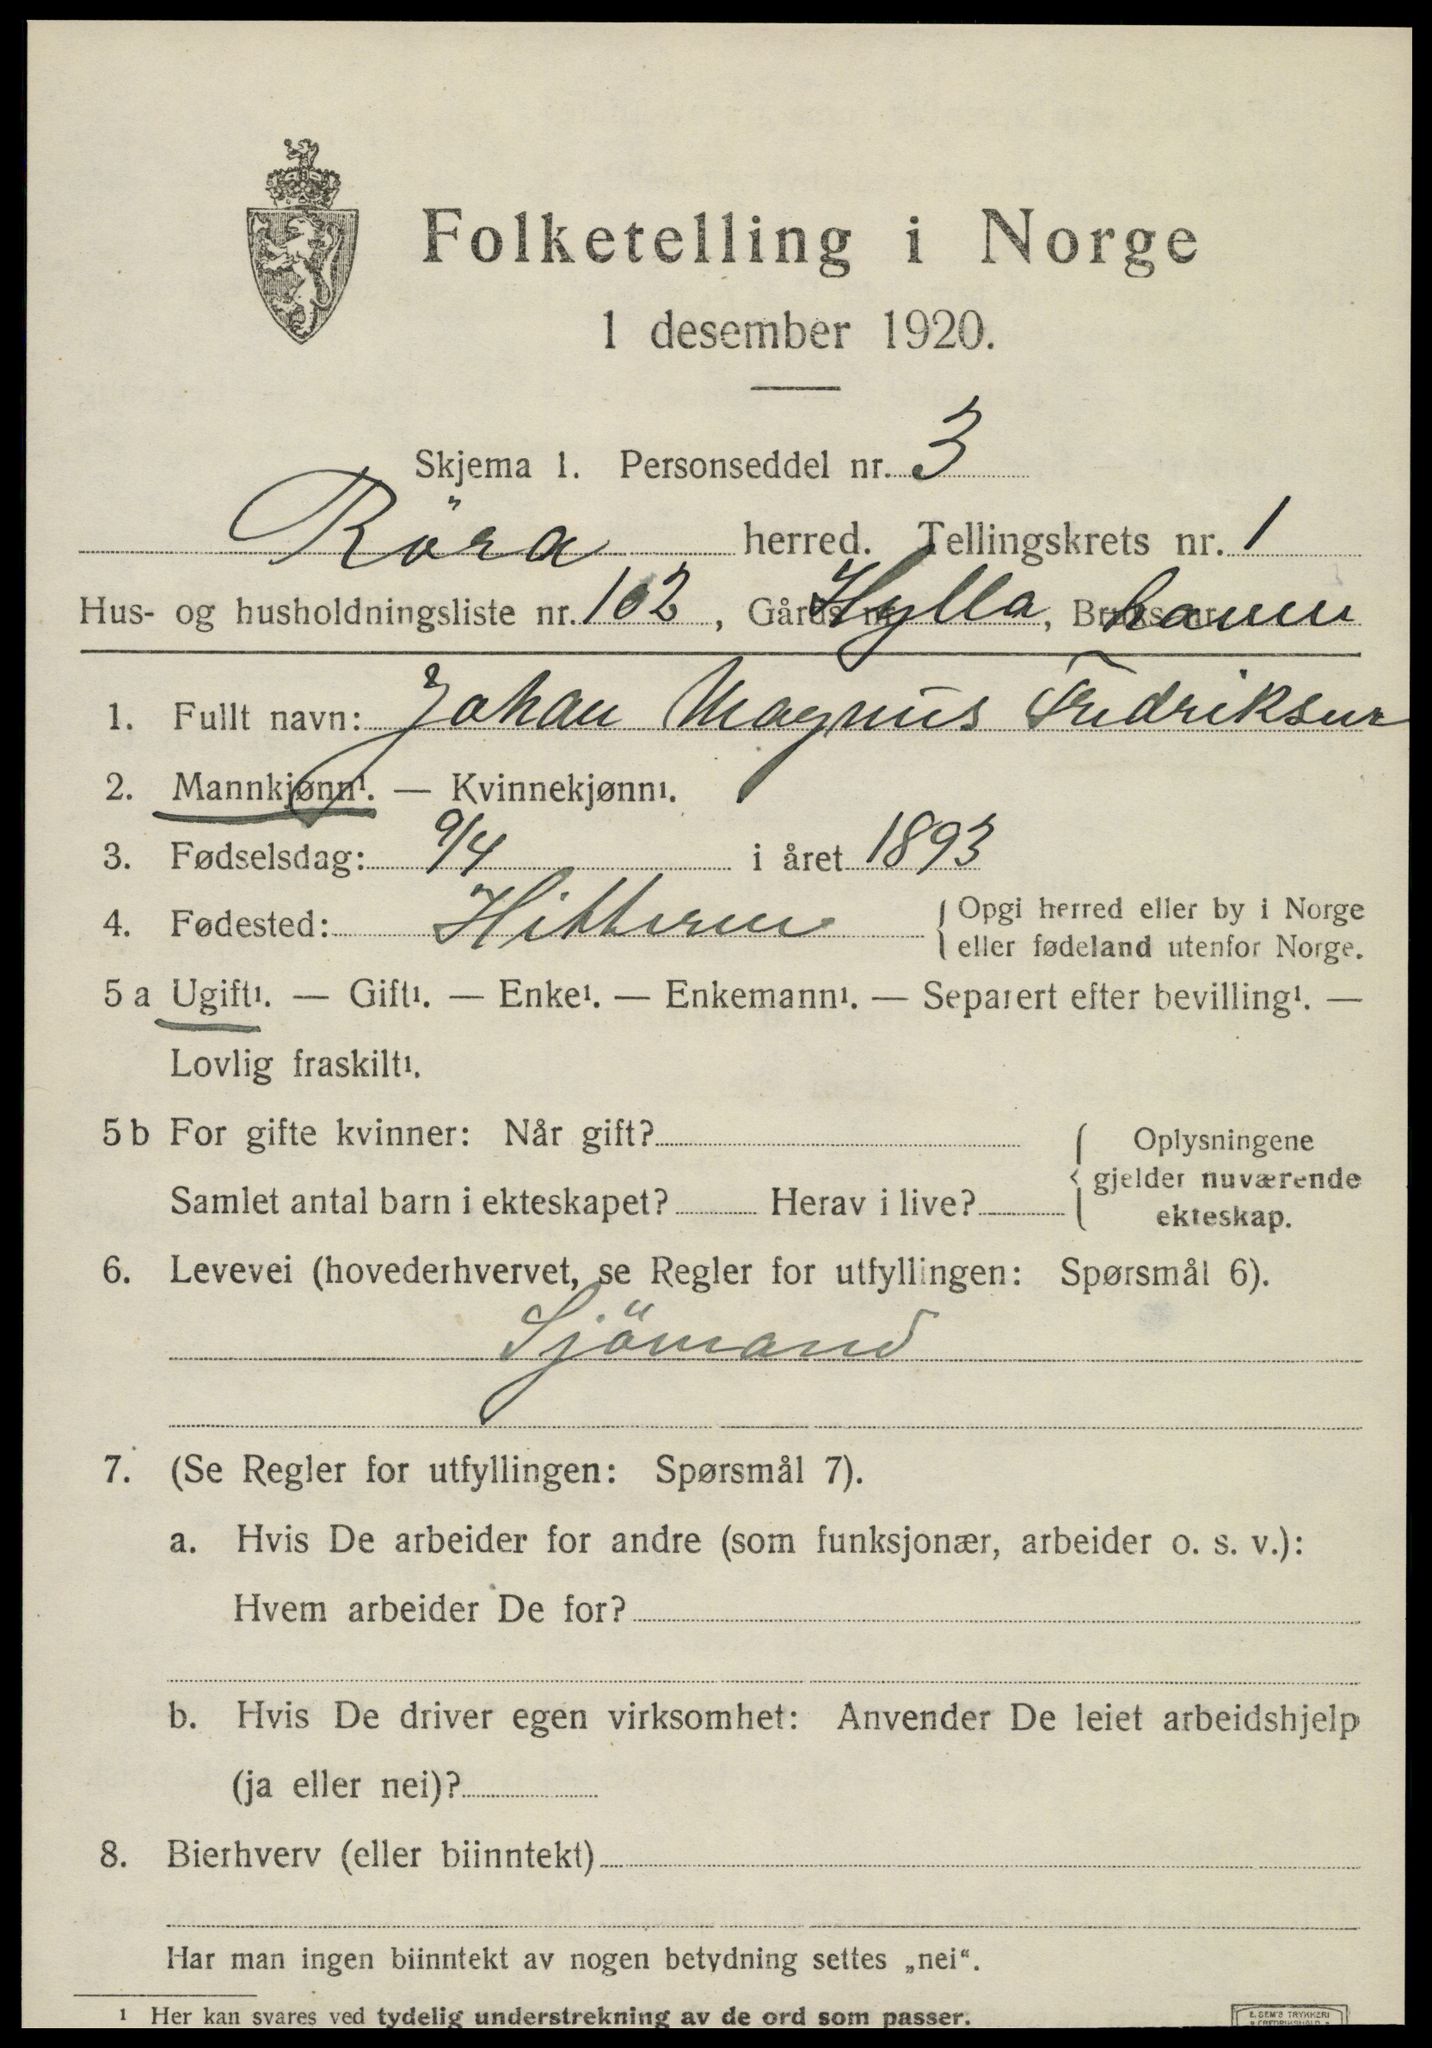 Folketelling i Norge
1 desember 1920.
Skjema 1. Personseddel nr. 3
Röra herred. Tellingskrets nr. 1
Hus- og husholdningsliste nr. 102, Gårds nr. Hylla, Bruks nr. havn
1. Fullt navn: Johan Magnus Fredriksen
2. Mannkjønn¹. — Kvinnekjønn¹.
3. Fødselsdag: 9/4 i året 1893
4. Fødested: Hitteren { Opgi herred eller by i Norge
eller fødeland utenfor Norge.
5 a Ugift¹. — Gift¹. — Enke¹. — Enkemann¹. — Separert efter bevilling¹. —
Lovlig fraskilt¹.
5 b For gifte kvinner: Når gift? { Oplysningene
gjelder nuværende
Samlet antal barn i ekteskapet? Herav i live? ekteskap.
6. Levevei (hovederhvervet, se Regler for utfyllingen: Spørsmål 6).
Sjömand
7. (Se Regler for utfyllingen: Spørsmål 7).
a. Hvis De arbeider for andre (som funksjonær, arbeider o. s. v.):
Hvem arbeider De for?
b. Hvis De driver egen virksomhet: Anvender De leiet arbeidshjelp
(ja eller nei)?
8. Bierhverv (eller biinntekt)
Har man ingen biinntekt av nogen betydning settes „nei“.
¹ Her kan svares ved tydelig understrekning av de ord som passer.
E. SEM'S TRYKKERI
FREDRIKSHALD